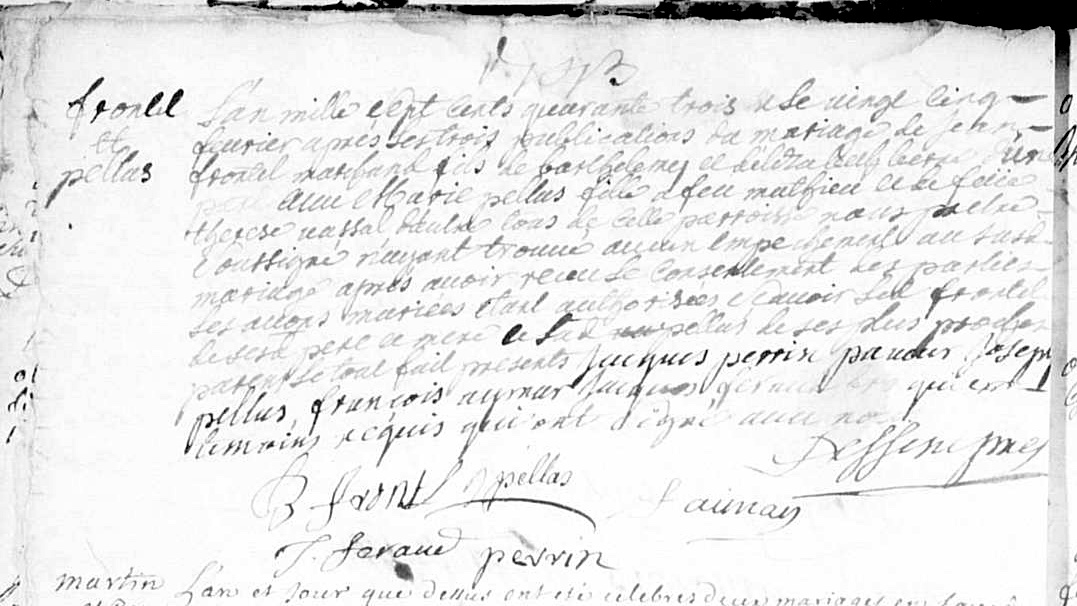 1743
frontil L'an mille sept cents quarante trois & le vingt cinq
et fevrier apres les trois publications du mariage de Jean
pellas frontil marchand fils de barthelemy et d'elizabeth d'une
part & Marie pellas fille a feu mathieu et de feüe
therese vassal d'autre tous de cette parroisse nous pretre
soussigné n'ayant trouvé aucun empechement au susd
mariage apres avoir receu le consentement des parties
les avons mariées etant authorisées scavoir led frontil
de sesd pere et mere et lad pellas de ses plus proches
parents le tout fait presents Jacques perrin Joseph
pellas, françois aymar Jacques
temoins requis qui ont signé avec nous
B frontil pellas f aimar
J. feraud perrin
martin L'an et jour que dessus ont été celebrés deux mariages